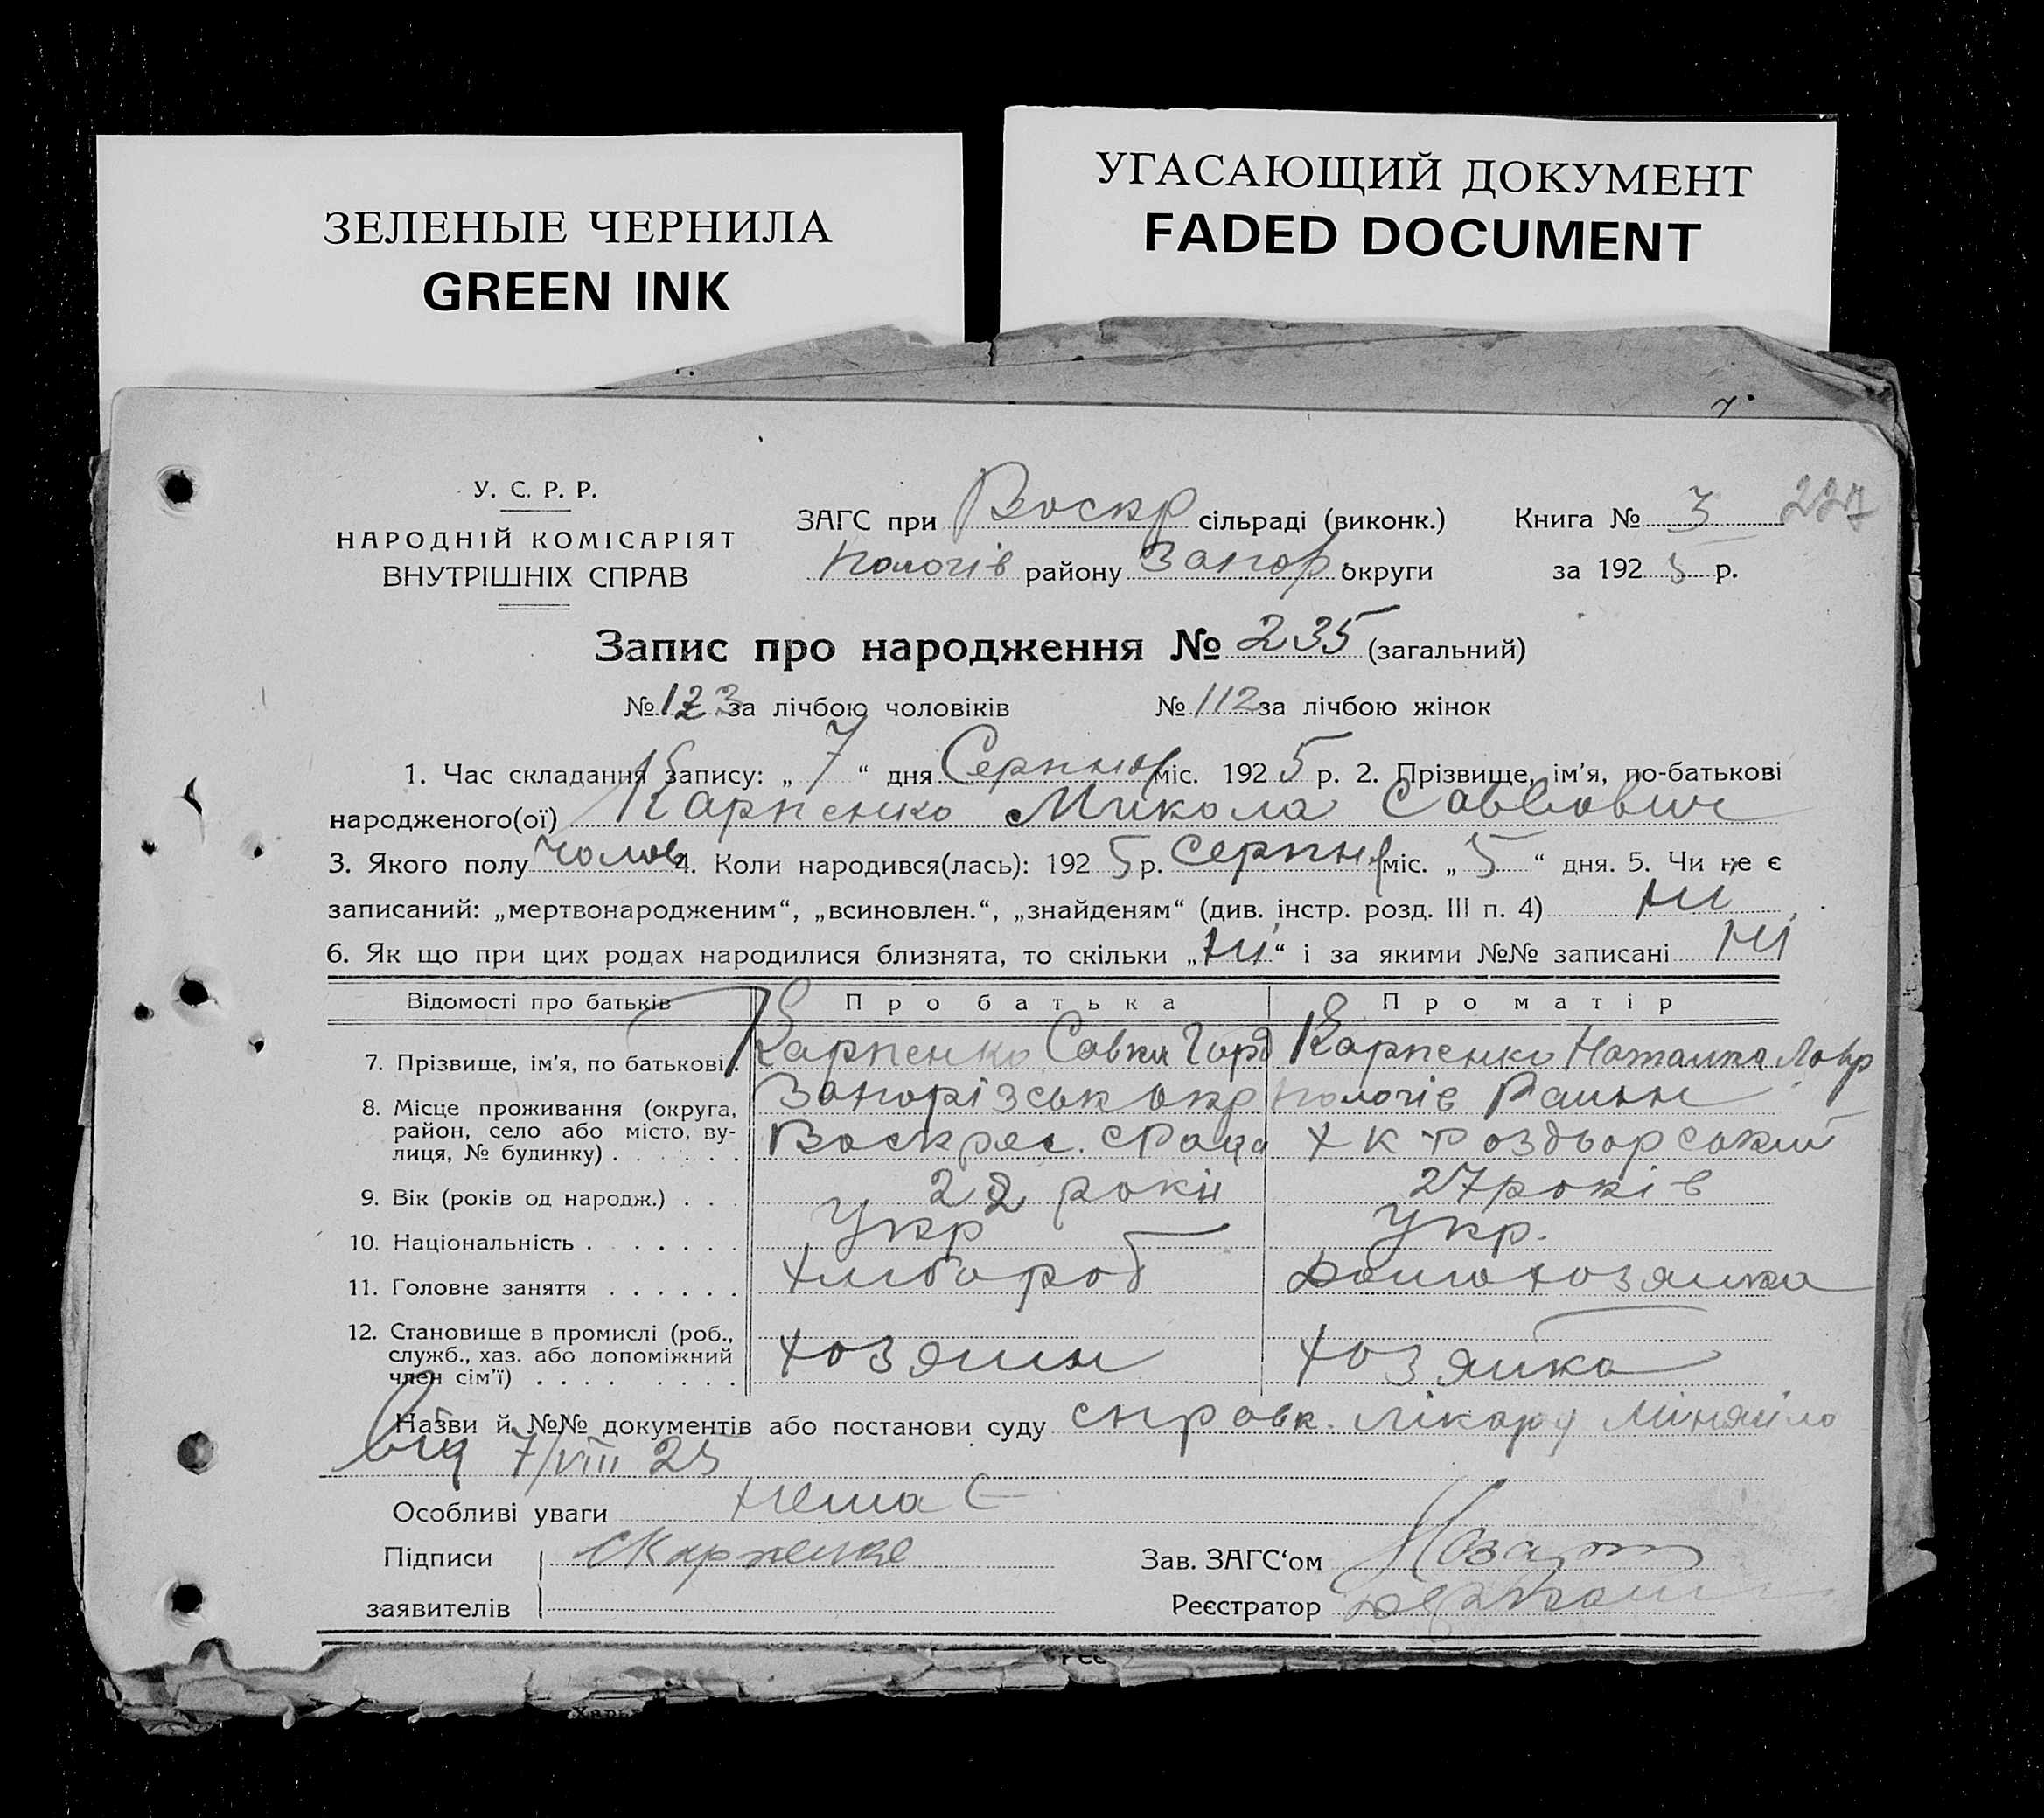 ЗЕЛЕНЫЕ ЧЕРНИЛА
GREEN INK
УГАСАЮЩИЙ ДОКУМЕНТ
FADED DOCUMENT
У. С. Р. Р.
НАРОДНІЙ КОМІСАРІЯТ
ВНУТРІШНІХ СПРАВ
ЗАГС при Воскр сільраді (виконк.)
Пологів району Запор. округи
Книга № 3 227
за 1925 р.
Запис про народження № 235 (загальний)
№ 123 за лічбою чоловіків № 112 за лічбою жінок
1. Час складання запису: „ 7 “ дня Серпня міс. 1925 р. 2. Прізвище, ім’я, по-батькові
народженого(ої) Карпенко Микола Саввович
3. Якого полу чолов 4. Коли народився(лась): 1925 р. Серпня міс. „ 5 “ дня. 5. Чи не є
записаний: „мертвонародженим“, „всиновлен.“, „знайденям“ (див. інстр. розд. III п. 4) ні
6. Як що при цих родах народилися близнята, то скільки „ ні “ і за якими №№ записані ні
Відомості про батьків Про батька Про матір
7. Прізвище, ім’я, по батькові. Карпенко Савка Горд Карпенко Наталка Лавр
8. Місце проживання (округа, район, село або місто, вулиця, № будинку) Запорізськ окр Пологів Район
Воскрес. сРада
9. Вік (років од народж.) 22 роки 27 років
10. Національність Укр Укр.
11. Головне заняття хлібороб домохозяйка
12. Становище в промислі (роб., служб., хаз. або допоміжний член сім’ї) хозяин хозяйка
Назви й №№ документів або постанови суду справк. лікаря
від 7/VIII 25
Особливі уваги нема є
Підписи СКарпенко Зав. ЗАГС‘ом
заявителів Реєстратор